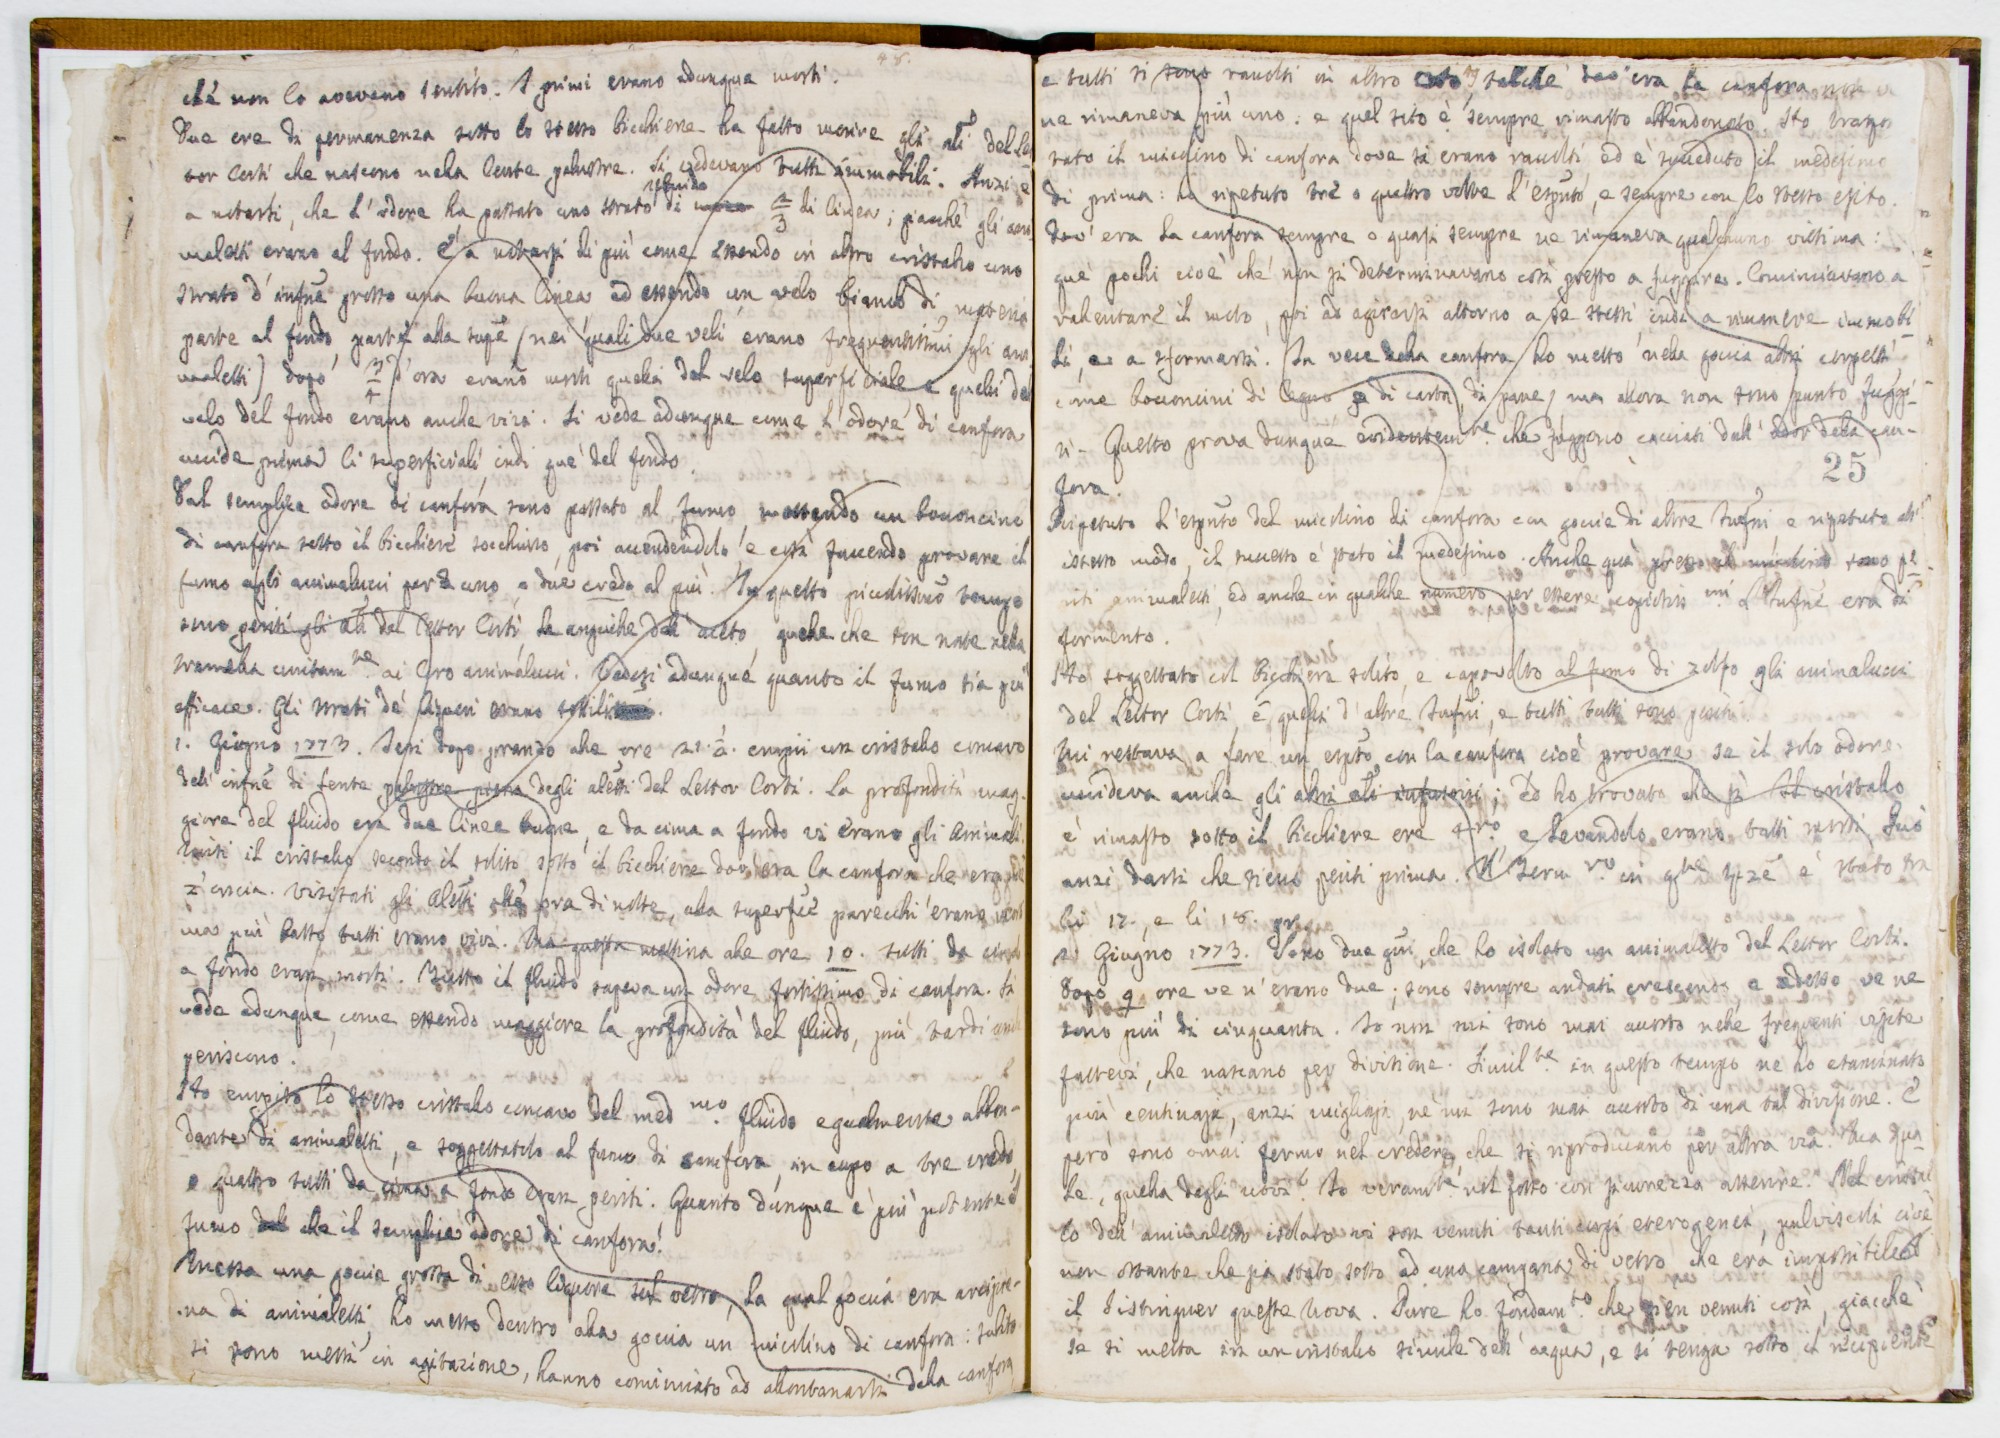 chè non lo avevano sentito. I primi erano adunque morti.
Due ore di permanenza sotto lo stesso bicchiere ha fatto morire gli ali del Let
tor Corti che nascono nella lente palustre. Si vedevano tutti immobili. Anzi è
a notarsi, che l'odore ha passato uno strato di fluido 2/3 di linea; giacchè gli ani
maletti erano al fondo. È a notarsi di più come essendo in altro cristallo uno
strato d'infne grosso una buona linea ed essendo un velo bianco di materia
parte al fondo parte alla supe (nei quali due veli erano frequentissimi gli ani
maletti) dopo 3/4 d'ora erano morti quelli del velo superficiale e quelli del
velo del fondo erano anche vivi. Si vede adunque come l'odore di canfora
uccide prima li superficiali indi que' del fondo.
Dal semplice odore di canfora sono passato al fumo, mettendo un bocconcino
di canfora sotto il bicchiere socchiuso, poi accendendolo e così facendo provare il
fumo agli animalucci per 1 uno, o due credo al più. In questo piccolissimo tempo
sono periti gli ali del Lettor Corti le anguille dell'aceto, quelle che son nate nella
tramella unitamte ai loro animalucci. Vedesi adunque quanto il fumo sia più
efficace. Gli strati de' liquori erano sottili.
1. Giugno 1773. Ieri dopo pranzo alle ore 21. á. empii un cristallo concavo
dell'infne di lente palustre piena degli aletti del Lettor Corti. La profondità mag-
giore del fluido era due linee buone, e da cima a fondo vi erano gli animali.
Misi il cristallo secondo il solito sotto il bicchiere dov'era la canfora che era
z'oncia. Visitati gli aletti alle ora di notte, alla superfce parecchi erano morti
ma più basso tutti erano vivi. Ma questa mattina alle ore 10. tutti da cima
a fondo eran morti. Tutto il fluido sapeva un odore fortissimo di canfora. Si
vede adunque, come essendo maggiore la profondità del fluido, più tardi
periscono.
Ho empito lo stesso cristallo concavo del medmo. fluido egualmente abbon-
dante di animaletti, e soggettatolo al fumo di canfora, in capo a tre credo,
o quattro tutti da cima a fondo eran periti. Quanto dunque è più potente il
fumo che il semplice odore di canfora!
Messa una goccia grossa di esso liquore sul vetro, la qual goccia era arcipie-
na di animaletti, ho messo dentro alla goccia un micolino di canfora: subito
si sono messi in agitazione, hanno cominciato ad allontanarsi dalla canfora
e tutti si sono raccolti in altro sito, talchè dov'era la canfora non
ne rimaneva più uno: e quel sito è sempre rimasto abbandonato. Ho traspor
tato il micolino di canfora dove si erano raccolti, ed è succeduto il medesimo
di prima: ho ripetuto tre o quattro volte l'esputo, e sempre con lo stesso esito.
Dov'era la canfora sempre o quasi sempre ne rimaneva qualcuno vittima:
que' pochi cioè che non si determinavano così presto a fuggire. Cominciavano a
rallentare il moto, poi ad agirarsi attorno a se stessi, indi a rimanere immobi
li, e a sformarsi. In vece della canfora ho messo nella goccia altri corpetti
come bocconcini di legno di carta, di pane, ma allora non sono punto fuggi-
ti - Questo prova dunque evidentemte che fuggono cacciati dall'odor della can-
fora.
25
Ripetuto l'esputo del micolino di canfora con goccie di altre Infni e ripetuto all'
istesso modo, il successo è stato il medesimo. Anche qua presso il micolino sono pe
riti animaletti, ed anche in qualche numero per essere copiosissmi. L'Infne era di
formento.
Ho soggettato col bicchiere solito, e capovolto al fumo di zolfo gli animalucci
del Lettor Corti, e quelli d'altre Infni, e tutti tutti sono periti.
Mi restava a fare un esputo con la canfora cioè provare se il solo odore
uccideva anche gli altri ali infusorj; ed ho trovato che sì. Il cristallo
è rimasto sotto il bicchiere ore 4ro, e levandolo, erano tutti morti. Può
anzi darsi che sieno periti prima. Il Termro. in qste spze è stato tra
li 17., e li 18. gr.
2. Giugno 1773. Sono due gni, che ho isolato un animaletto del Lettor Corti.
Dopo 9 ore ve n'erano due; sono sempre andati crescendo, e adesso ve ne
sono più di cinquanta. Io non mi sono mai accorto nelle frequenti visite
fattevi, che nascano per divisione. Similte. in questo tempo ne ho esaminato
più centinaja, anzi migliaja, nè mi sono mai accorto di una tal divisione. E
però sono omai fermo nel credere, che si riproducano per altra via. Ma qua-
le, quella degli uovi? Io veramte. nol posso con sicurezza asserire. Nel cristal
lo dell'animaletto isolato vi son venuti tanti corpi eterogenei, pulviscoli cioè
non ostante che sia stato sotto ad una campana di vetro che era impossibile
il distinguer queste uova. Pure ho fondamto. che sien venuti così, giacchè
se si metta in un cristallo simile dell'acqua, e si tenga sotto il recipiente